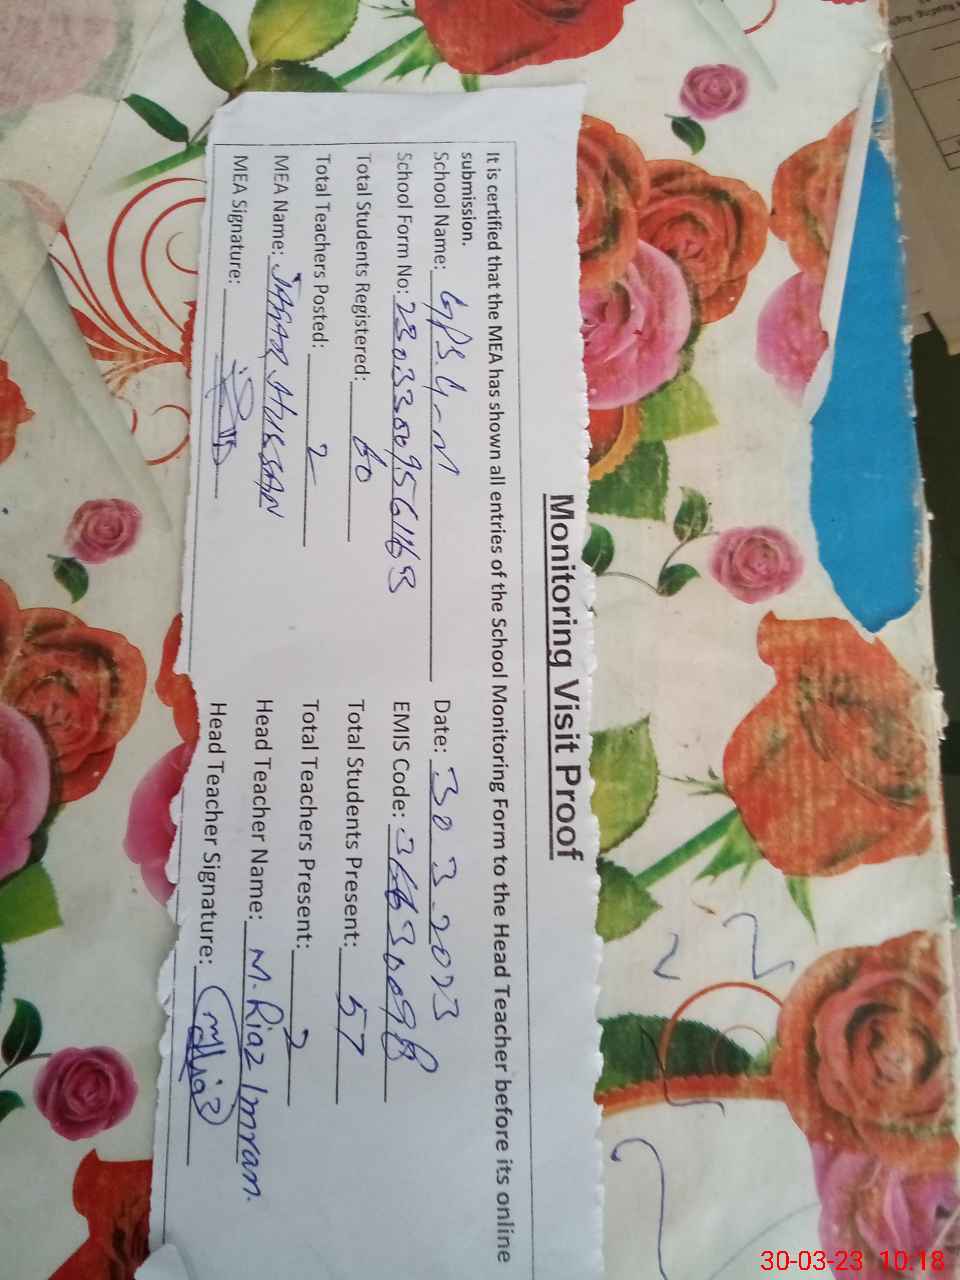 Monitoring Visit Proof
It is certified that the MEA has shown all entries of the School Monitoring Form to the Head Teacher before its online
submission.
School Name: GPS. 4-M Date: 30 3-2023
School Form No: Z3033 EMIS Code:
Total Students Registered: 60 Total Students Present: 57
Total Teachers Posted: 2 Total Teachers Present: 2
MEA Name: Head Teacher Name: M. Riaz Imran.
MEA Signature: Head Teacher Signature: M Riaz
30-03-23 10:18